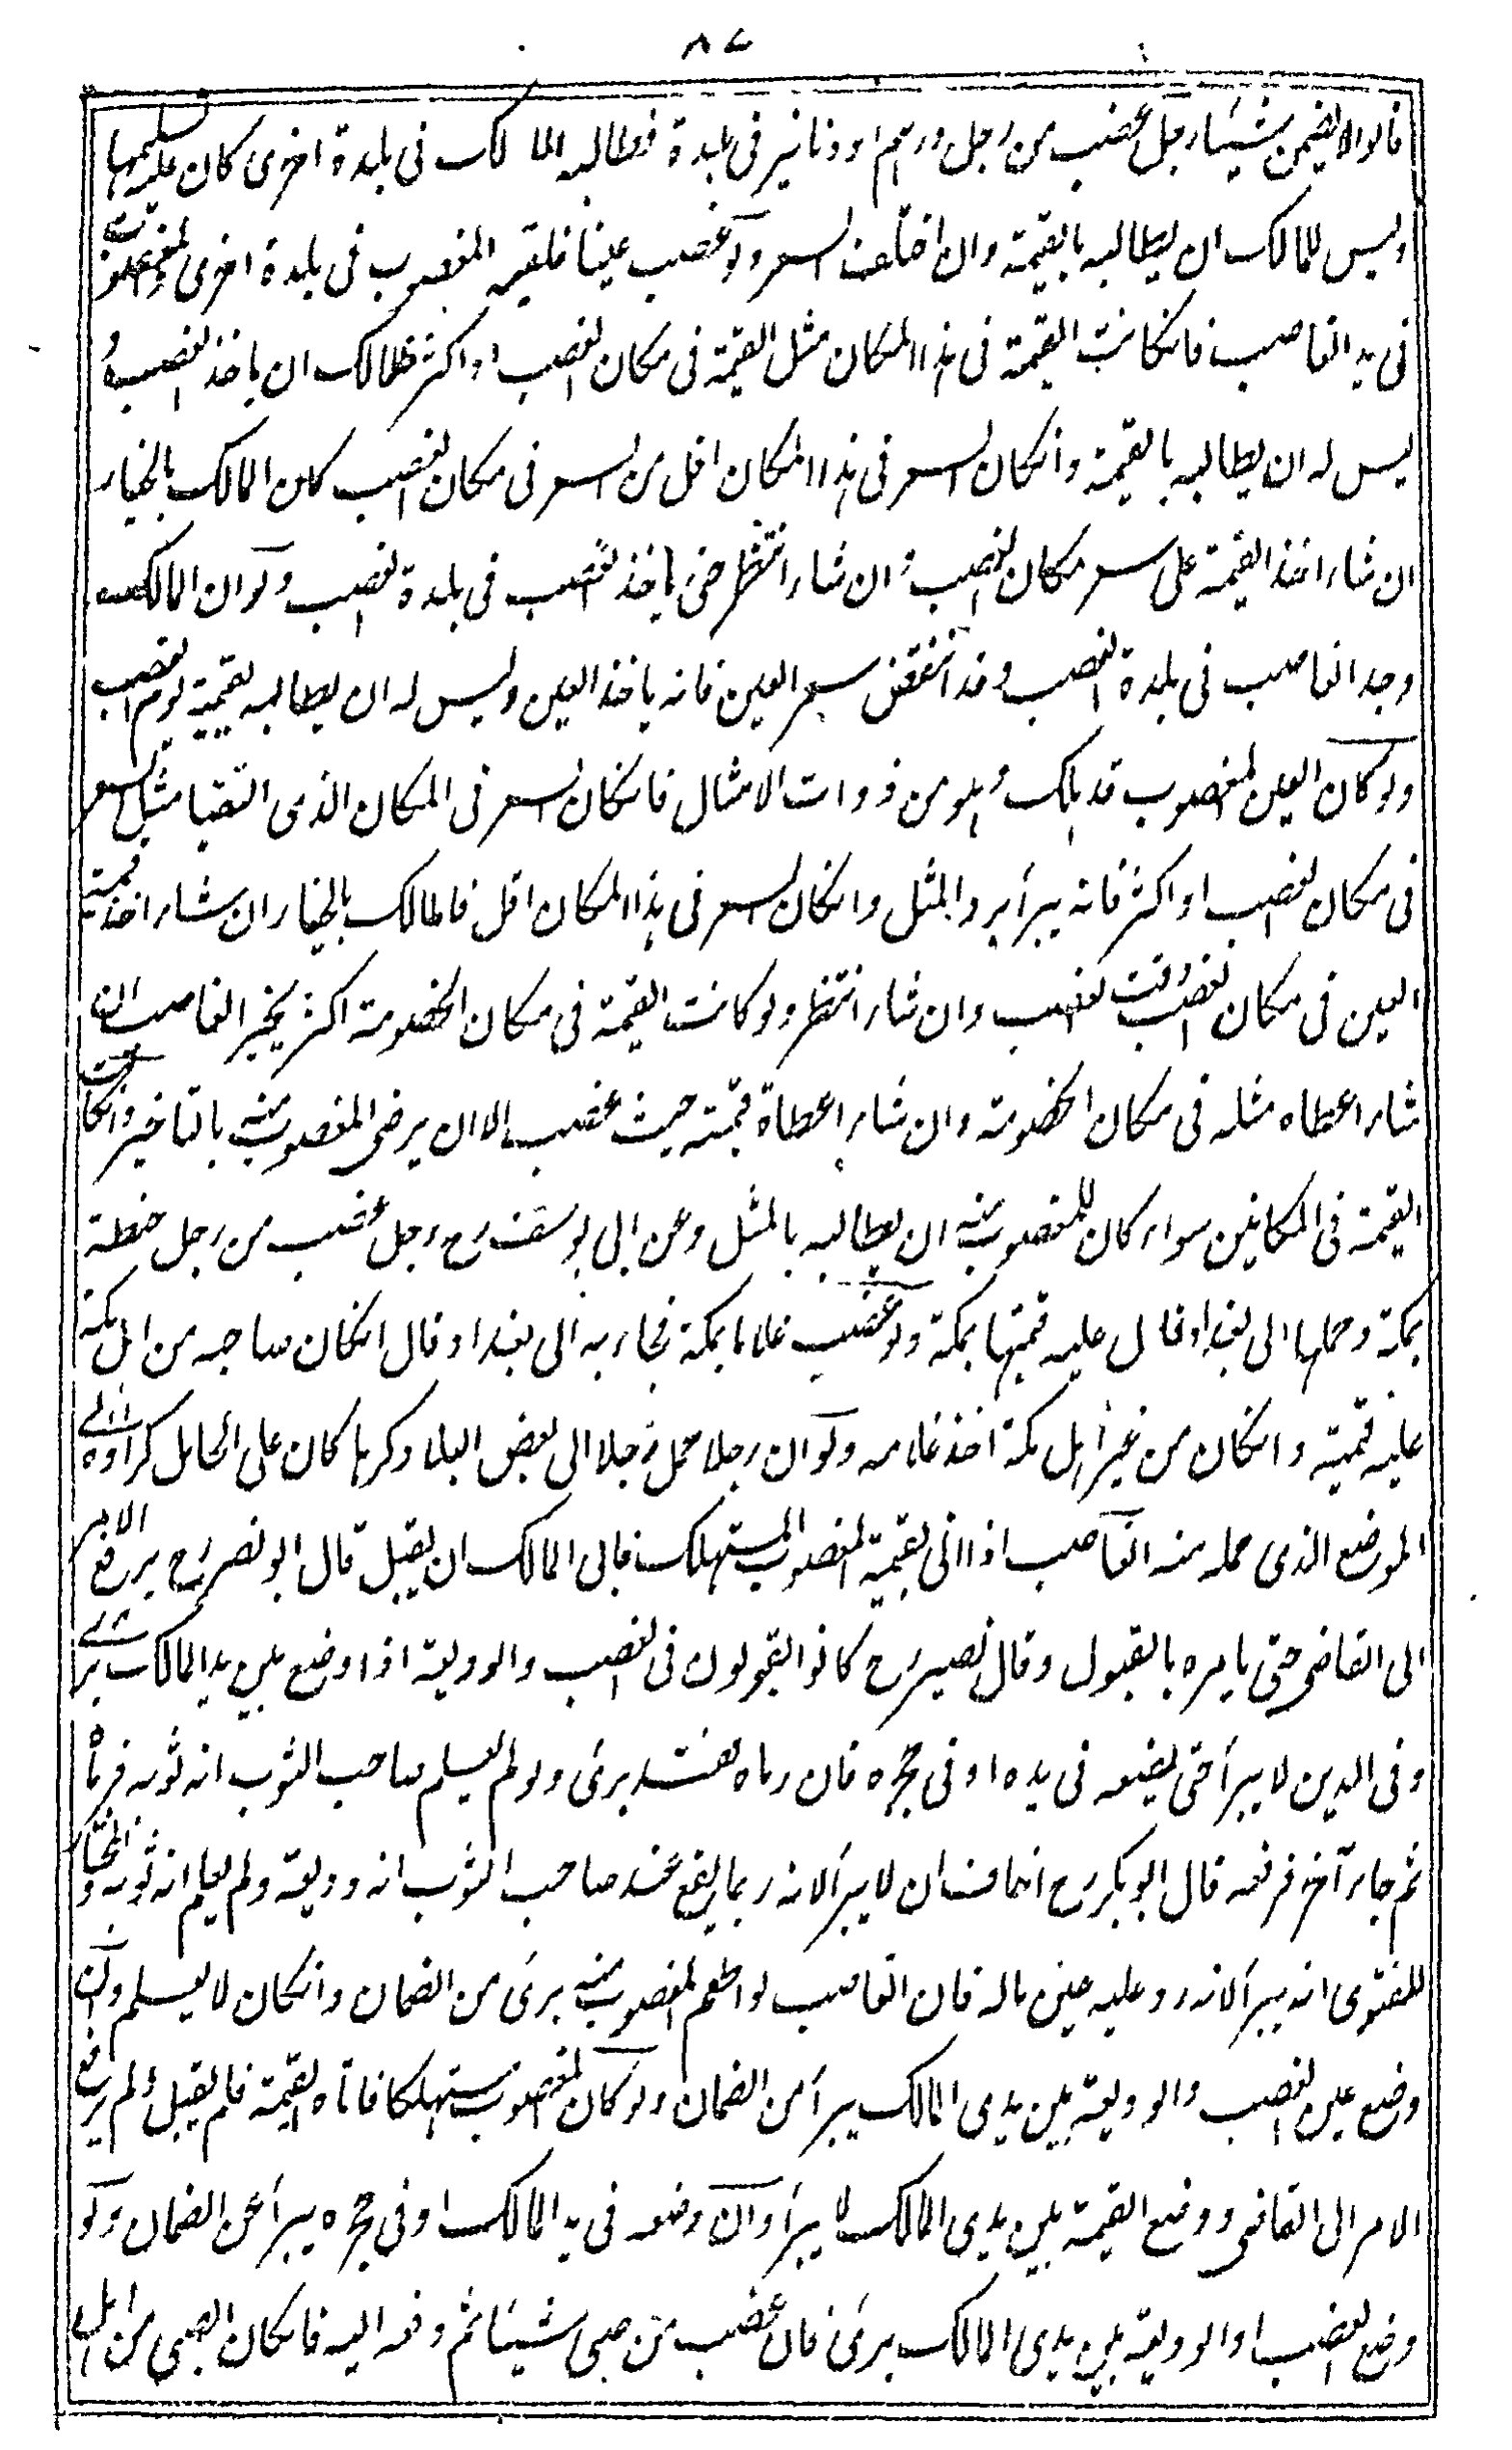 ٨٧
قالوا لا يضمن شيئا رجل غصب من رجل دراهم او دنانير فى بلدة فطالبه المالك فى بلدة اخرى كان عليه تسليمها
وليس للمالك ان يطالبه بالقيمة وان اختلف السعر ولو غصب عينا فلقيه المغصوب فى بلدة اخرى والمغصوب
فى يد الغاصب فانكانت القيمة فى هذا المكان مثل القيمة فى مكان الغصب او اكثر فللمالك ان ياخذ الغصب و
ليس له ان يطالبه بالقيمة وانكان السعر فى هذا المكان اقل من السعر فى مكان الغصب كان المالك بالخيار
ان شاء اخذ القيمة على سعر مكان الغصب وان شاء انتظر حتى ياخذ الغصب فى بلدة الغصب ولو ان المالك
وجد الغاصب فى بلدة الغصب وقد انتقض سعر العين فانه ياخذ العين وليس له ان يطالبه بقيمته يوم الغصب
ولو كان العين المغصوب قد هلك وهو من ذوات الامثال فانكان السعر فى المكان الذى التقيا مثل السعر
فى مكان الغصب او اكثر فانه يبرأ برد المثل وانكان السعر فى هذا المكان اقل فالمالك بالخيار ان شاء اخذ قيمة
العين فى مكان الغصب وقت الغصب وان شاء انتظر ولو كانت القيمة فى مكان الخصومة اكثر يخير الغاصب ان
شاء اعطاه مثله فى مكان الخصومة وان شاء اعطاه قيمته حيث غصب الا ان يرضى المغصوب منه بالتاخير وانكانت
القيمة فى المكانين سواء كان للمغصوب منه ان يطالبه بالمثل وعن ابى يوسف رح رجل غصب من رجل حنطة
بمكة وحملها الى بغداد قال عليه قيمتها بمكة ولو غصب غلاما بمكة فجاء به الى بغداد قال انكان صاحبه من اهل مكة
عليه قيمته وانكان من غير اهل مكة اخذ غلامه ولو ان رجلا حمل رجلا الى بعض البلاد كرها كان على الحامل كراؤه الى
الموضع الذى حمله منه الغاصب اذا اتى بقيمة المغصوب المستهلك فابى المالك ان يقبل قال ابو نصر رح يرفع الامر
الى القاضى حتى يامره بالقبول وقال نصير رح كانوا يقولون فى الغصب والوديعة اذا وضع بين يدى المالك برأ
وفى الدين لا يبرأ حتى يضعه فى يده او فى حجره فان رماه نفسه برئ ولو لم يعلم صاحب الثوب انه ثوبه فرماه
ثم جاء آخر فرفعه قال ابو بكر رح اخاف ان لا يبرأ لانه ربما يقع عند صاحب الثوب انه وديعة ولم يعلم انه ثوبه والمختار
للفتوى انه يبرأ لانه رد عليه عين ماله فان الغاصب لو اطعم المغصوب منه برئ من الضمان وانكان لا يعلم وان
وضع عين الغصب والوديعة بين يدى المالك يبرأ من الضمان ولو كان المغصوب مستهلكا فاتاه القيمة فلم يقبل ولم يرفع
الامر الى القاضى ووضع القيمة بين يدى المالك لا يبرأ وان وضعه فى يد المالك او فى حجره يبرأ عن الضمان ولو
وضع الغصب او الوديعة بين يدى المالك برئ فان غصب من صبى شيئا ثم دفعه اليه فانكان الصبى من اهل